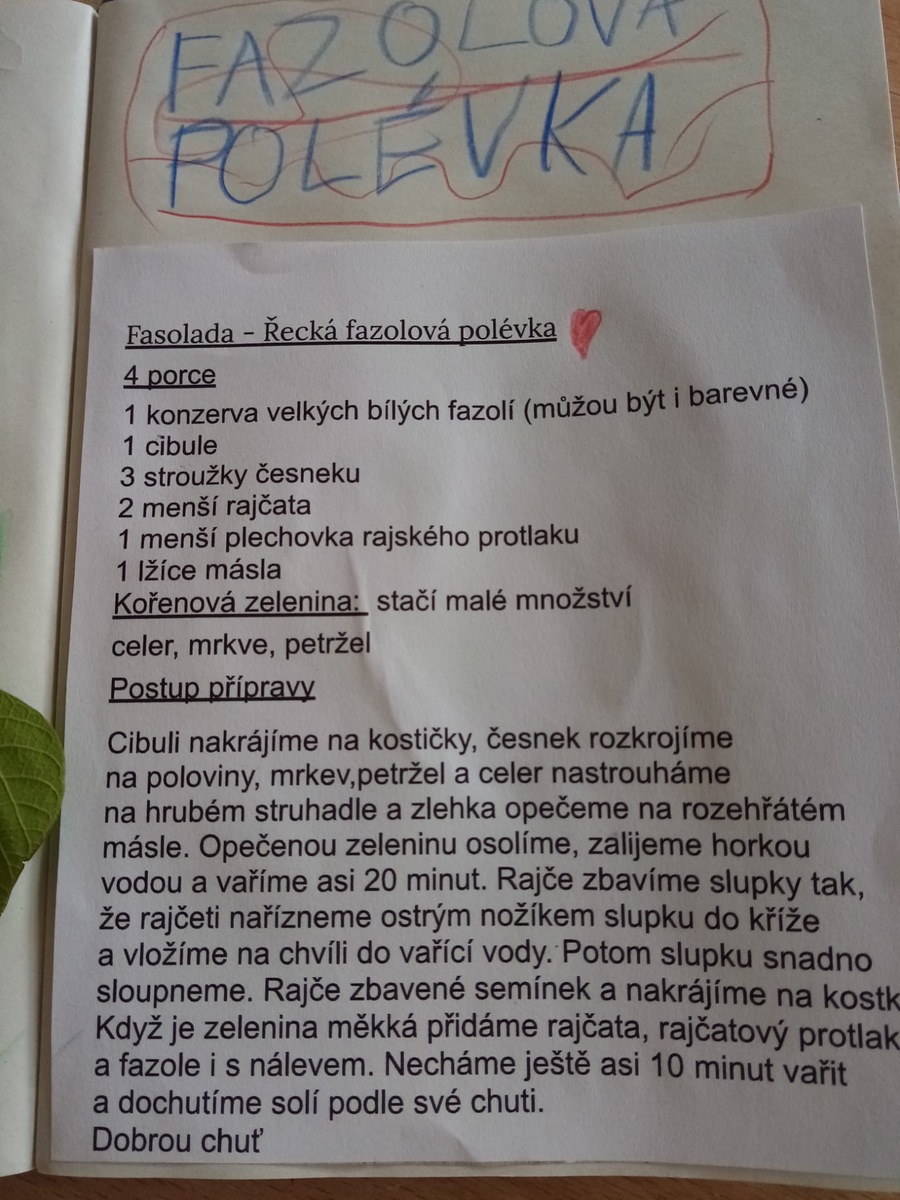 FAZOLOVÁ
POLÉVKA
Fasolada - Řecká fazolová polévka
4 porce
1 konzerva velkých bílých fazolí (můžou být i barevné)
1 cibule
3 stroužky česneku
2 menší rajčata
1 menší plechovka rajského protlaku
1 lžíce másla
Kořenová zelenina: stačí malé množství
celer, mrkve, petržel
Postup přípravy
Cibuli nakrájíme na kostičky, česnek rozkrojíme
na poloviny, mrkev,petržel a celer nastrouháme
na hrubém struhadle a zlehka opečeme na rozehřátém
másle. Opečenou zeleninu osolíme, zalijeme horkou
vodou a vaříme asi 20 minut. Rajče zbavíme slupky tak,
že rajčeti nařízneme ostrým nožíkem slupku do kříže
a vložíme na chvíli do vařící vody. Potom slupku snadno
sloupneme. Rajče zbavené semínek a nakrájíme na kostk
Když je zelenina měkká přidáme rajčata, rajčatový protlak
a fazole i s nálevem. Necháme ještě asi 10 minut vařit
a dochutíme solí podle své chuti.
Dobrou chuť